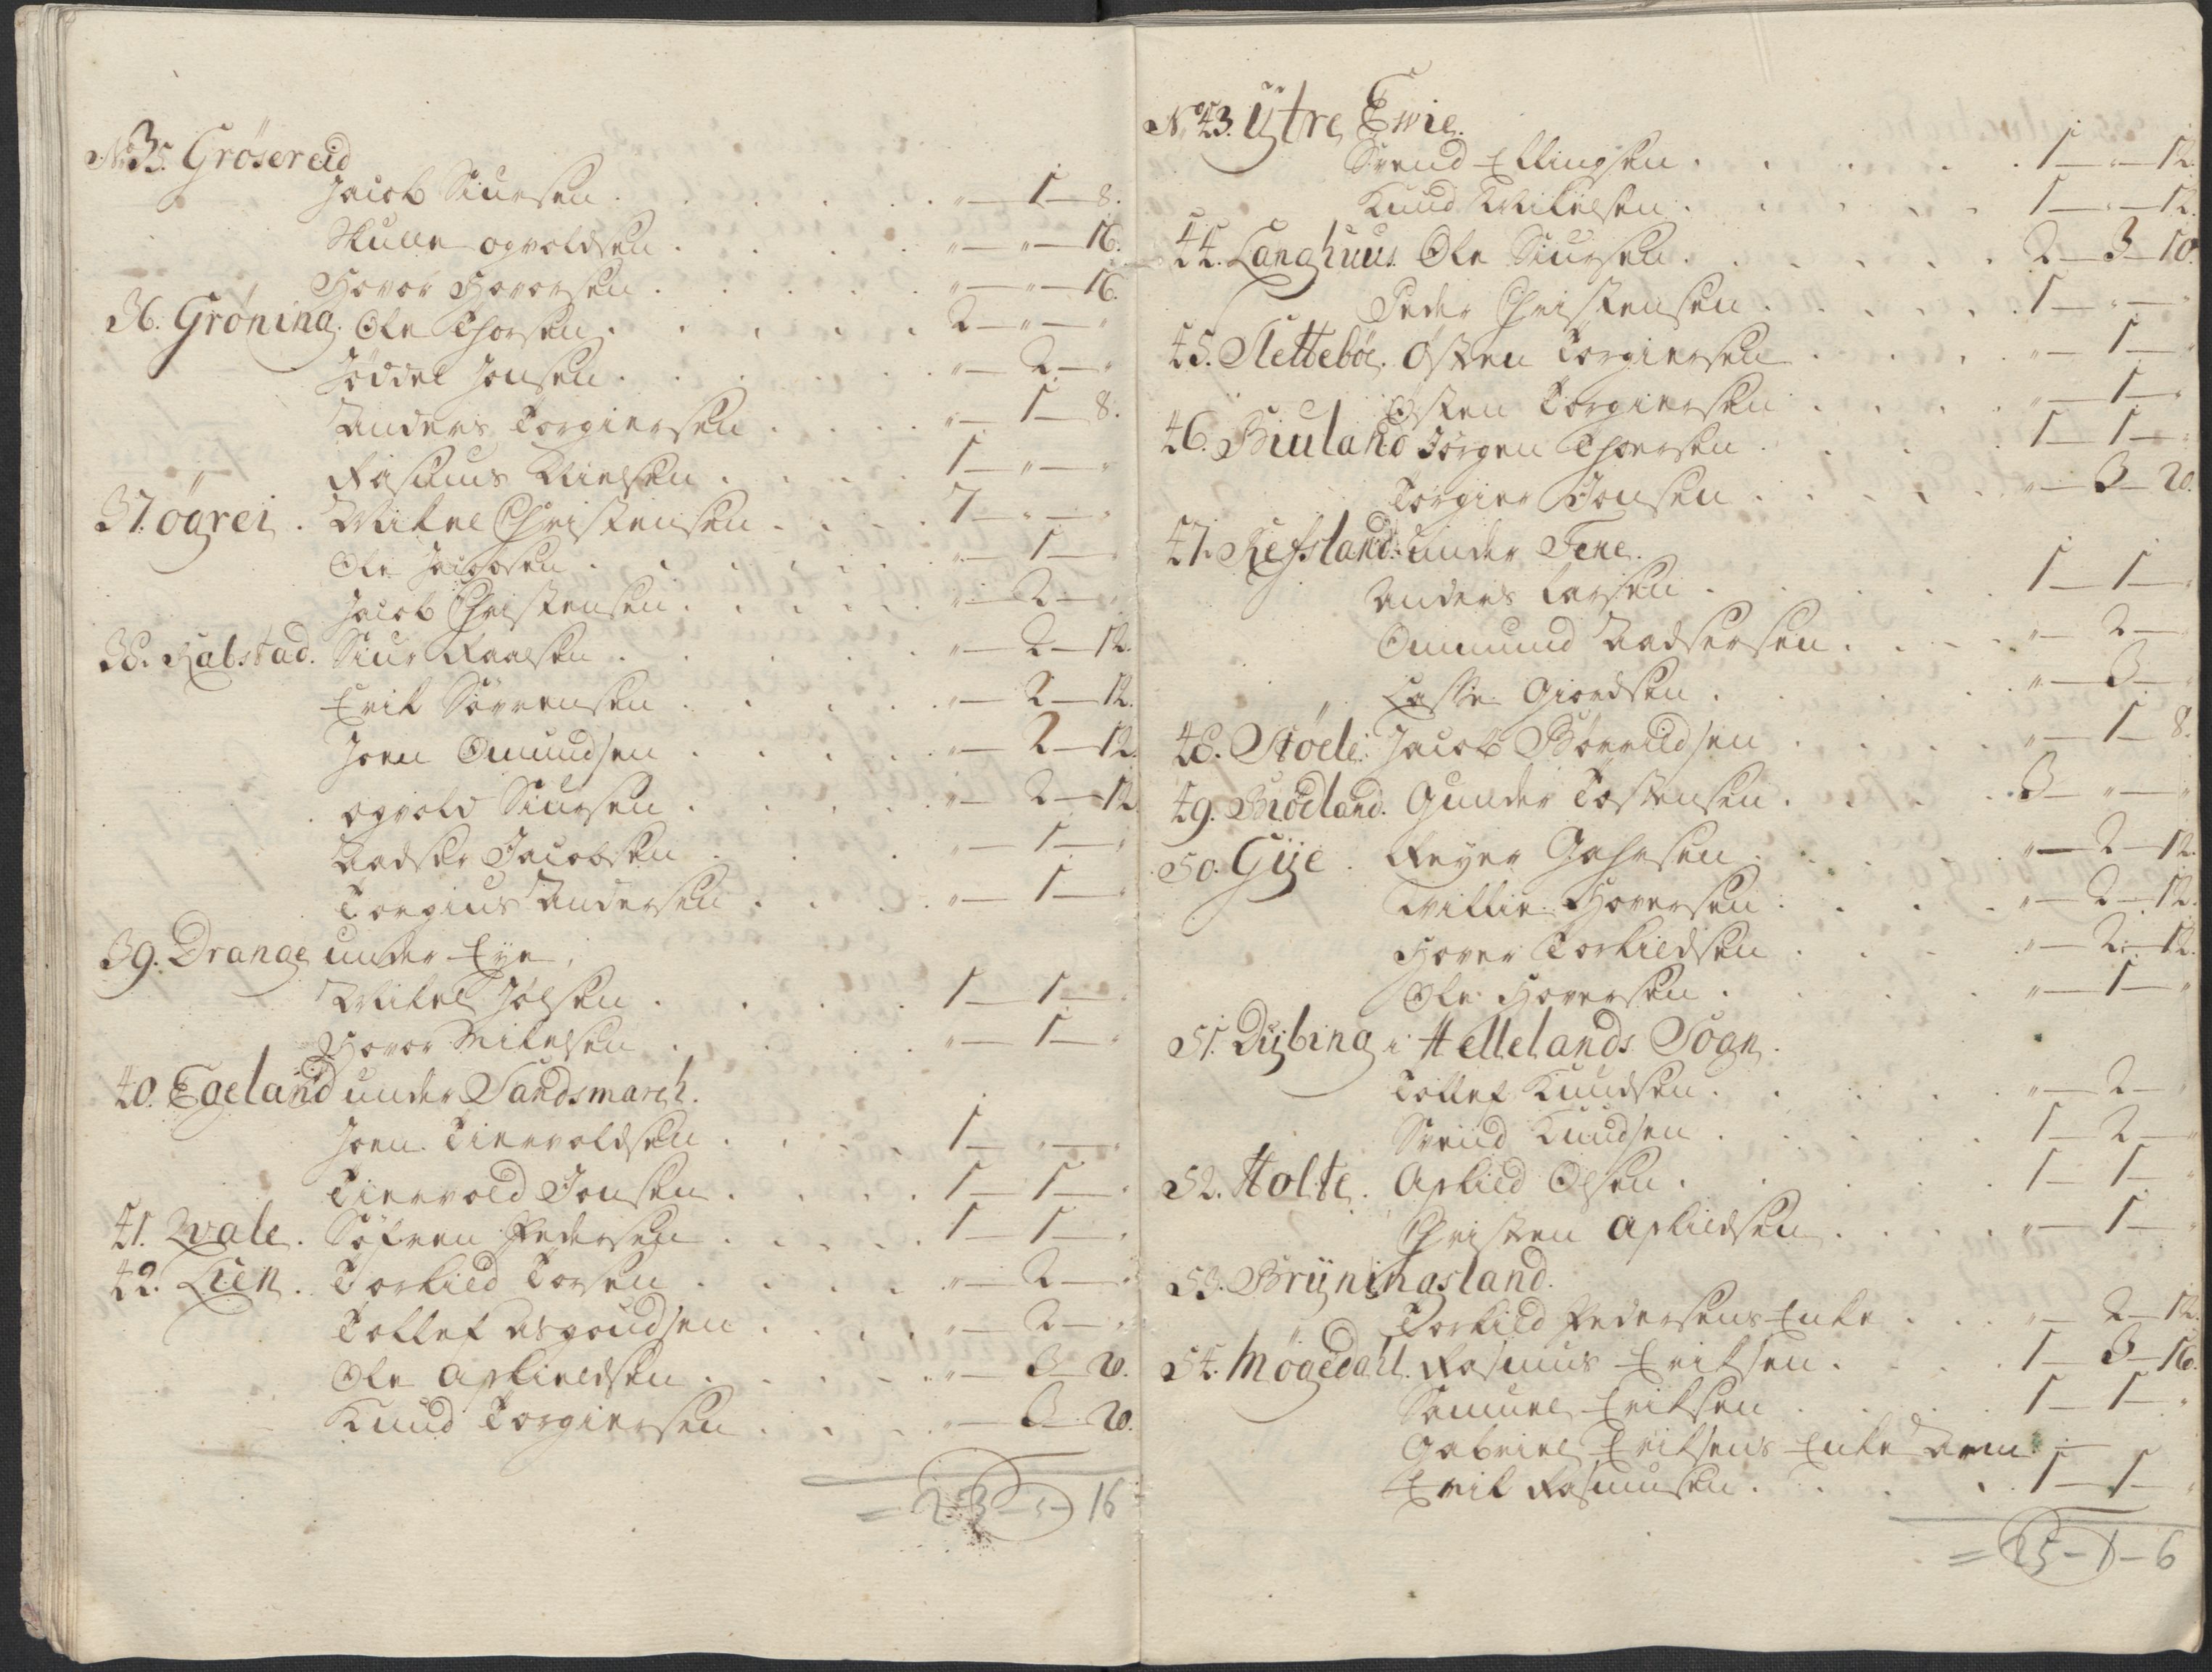 No 35. Grösereid
Jacob Siursen . . . . . . „ — 1 — 8.
Skulle ogvoldsen . . . . „ — „ — 16.
Hovor Hovorsen . . . . . „ — „ — 16.
36. Gröning. Ole Thorsen . . . . . 2 — „ — „
Jöddel Jonsen . . . . . . „ — 2 — „
Anders Torgiersen . . . . „ — 1 — 8.
Rasmus Nielsen . . . . 1 — „ — „
37. ögrei . Mikel Christensen . . . . 7 — „ — „
Ole Jacobsen . . . . . . „ — 1 — „
Jacob Christensen . . . . . „ — 2 — „
38. Rabstad. Siur Raalsen . . . . . „ — 2 — 12.
Erik Sörrensen . . . . . „ — 2 — 12.
Joen Omundsen . . . . . „ — 2 — 12.
ogvold Siursen . . . . . „ — 2 — 12
Aadser Jacobsen . . . „ — 1 — „
Torgius Andersen . . . . „ — 1 — „
39. Drange under Eye,
Mikel Jölsen . . . . . 1 — 1 — „
Hovor Mikelsen . . . . . „ — 1 — „
40. Egeland under Sandsmarch.
Joen Tiervoldsen . . . . 1 — „ — „
Tiervold Jonsen . . . . 1 — 1 — „
41. Wale . Söfren Pedersen . . . . . 1 — 1 — „
42. Lien . Torkild Torsen . . . . . „ — 2 — „
Tollef Asgoudsen . . . . „ — 2 — „
Ole Aslieldsen . . . . . „ — 3 — 20.
Knud Torgiersen . . . . „ — 3 — 20.
= 23 — „ — 16
No 43. Ÿtre Ewie.
Svend Ellingsen . . . . . 1 — „ — 12.
Knud Mikelsen . . . . . 1 — „ — 12.
44. Langhuus. Ole Siursen . . . . . . 2 — 3 — 10.
Peder Christensen . . . . . 1 — „ — „
45. Sletteböe. Östen Torgiersen . . . . „ — 1 — „
Östen Torgiersen . . . . „ — 1 — „
46. Biuland Jörgen Thoersen . . . . 1 — 1 — „
Torgier Jonsen . . . . . „ — 3 — 20.
47. Refsland: under Fene.
Anders Larsen . . . . . 1 — 1 — „
Ommund Aadsersen . . . . „ — 2 — „
Lasse Giordsen . . . . . „ — 3 — „
48. Stöele: Jacob Börrildsen . . . . „ — 1 — 8.
49. Biödland. Gunder Tostensen . . . . 3 — „ — „
50. Gÿe . Reyer Gahrsen . . . . . „ — 2 — 12.
Willie Hoversen . . . . „ — 2 — 12.
Hover Torkieldsen . . . . „ — 2 — 12.
Ole Hoversen . . . . . „ — 1 — „
51. Dÿbing i Hellelands Sogn.
Tollef Knudsen . . . . . „ — 2 — „
Svend Knudsen . . . . . 1 — 2 — „
52. Holte . Aslied Olsen . . . . . 1 — 1 — „
Christen Aslieldsen . . . . „ — 1 — „
53. Brÿningsland.
Torkild Pedersens Enke . . . „ — 2 — 12.
54. Mögedahl. Rasmus Eriksen . . . . 1 — 3 — 16.
Samuel Eriksen . . . . 1 — 1 — „
Gabriel Eriksens Enke Arm: —
Erik Rasmusen . . . . . 1 — 1 — „
= 25 — 1 — 6